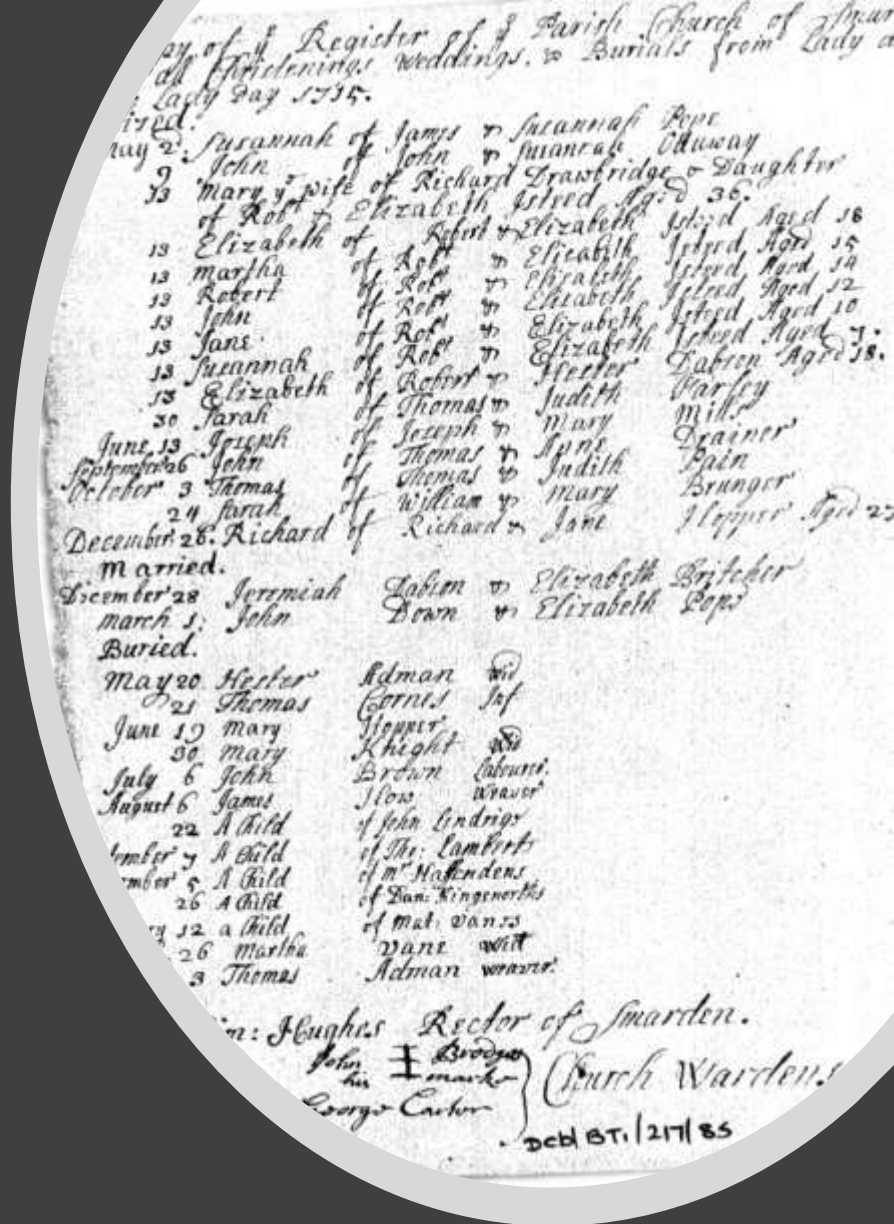 py of yᵉ Register of yᵉ Parish Church of Smar
all Christenings Weddings. & Burials from Lady
Lady Day 1715.
ized.
may 2. Susannah of James & Susannah Pope
9 John of John & Susannah Ottaway
13 Mary yᵉ wife of Richard Drawbridge & Daughter
of Robᵗ & Elizabeth Isteed Aged 36.
13 Elizabeth of Robert & Elizabeth Isteed Aged 18
13 martha of Robᵗ & Elizabeth Isteed Aged 15
13 Robert of Robᵗ & Elizabeth Isteed Aged 14
13 John of Robᵗ & Elizabeth Isteed Aged 12
13 Jane of Robᵗ & Elizabeth Isteed Aged 10
13 Susannah of Robᵗ & Elizabeth Isteed Aged 7.
13 Elizabeth of Robert & Hester Dabson Aged 18.
30 Sarah of Thomas & Judith Farley
June 13 Joseph of Joseph & Mary Mills
September 26 John of Thomas & Anne Drainer
October 3 Thomas of Thomas & Judith Pain
24 Sarah of William & Mary Brunger
December 26. Richard of Richard & Jane Hopper Aged 27
Married.
December 28 Jeremiah Dabson & Elizabeth Britcher
march 1. John Down & Elizabeth Pope
Buried.
May 20 Hester Adman wid
21 Thomas Cornes Inf
June 19 Mary Hopper
30 Mary Knight wid
July 6 John Brown Labourer.
August 6 James How Weaver
22 A Child of John Lindrigs
tember 7 A Child of Tho: Lamberts
mber 5 A Child of mʳ Haffendens
26 A Child of Dan: Kingsnorths
ry 12 a Child of Mat: Vanes
26 Martha Vane
3 Thomas Adman weaver.
m: Hughes Rector of Smarden.
John ‡ Brodges
his marke
Church Wardens
George Carter
Dcb/BT1/217/85